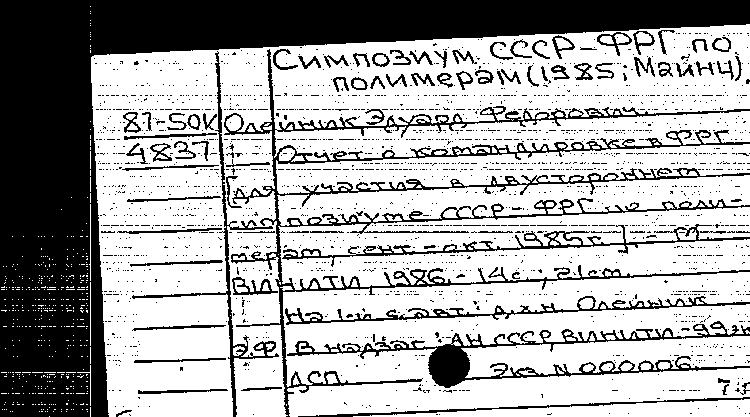 Симпозиум СССР-ФРГ по
полимерам (1985; Майнц).
87-50К Олейник, Эдуард Федорович.
4837 Отчет о командировке в ФРГ
[для участия в двустороннем
симпозиуме СССР-ФРГ по поли-
мерам, сент.-окт. 1985г.]. - М.:
ВИНИТИ, 1986. - 14с.; 21см.
На 1-й с. авт.: д.х.н. Олейник
Э.Ф. В надзаг.: АН СССР, ВИНИТИ.
ДСП. Экз. N 000006.